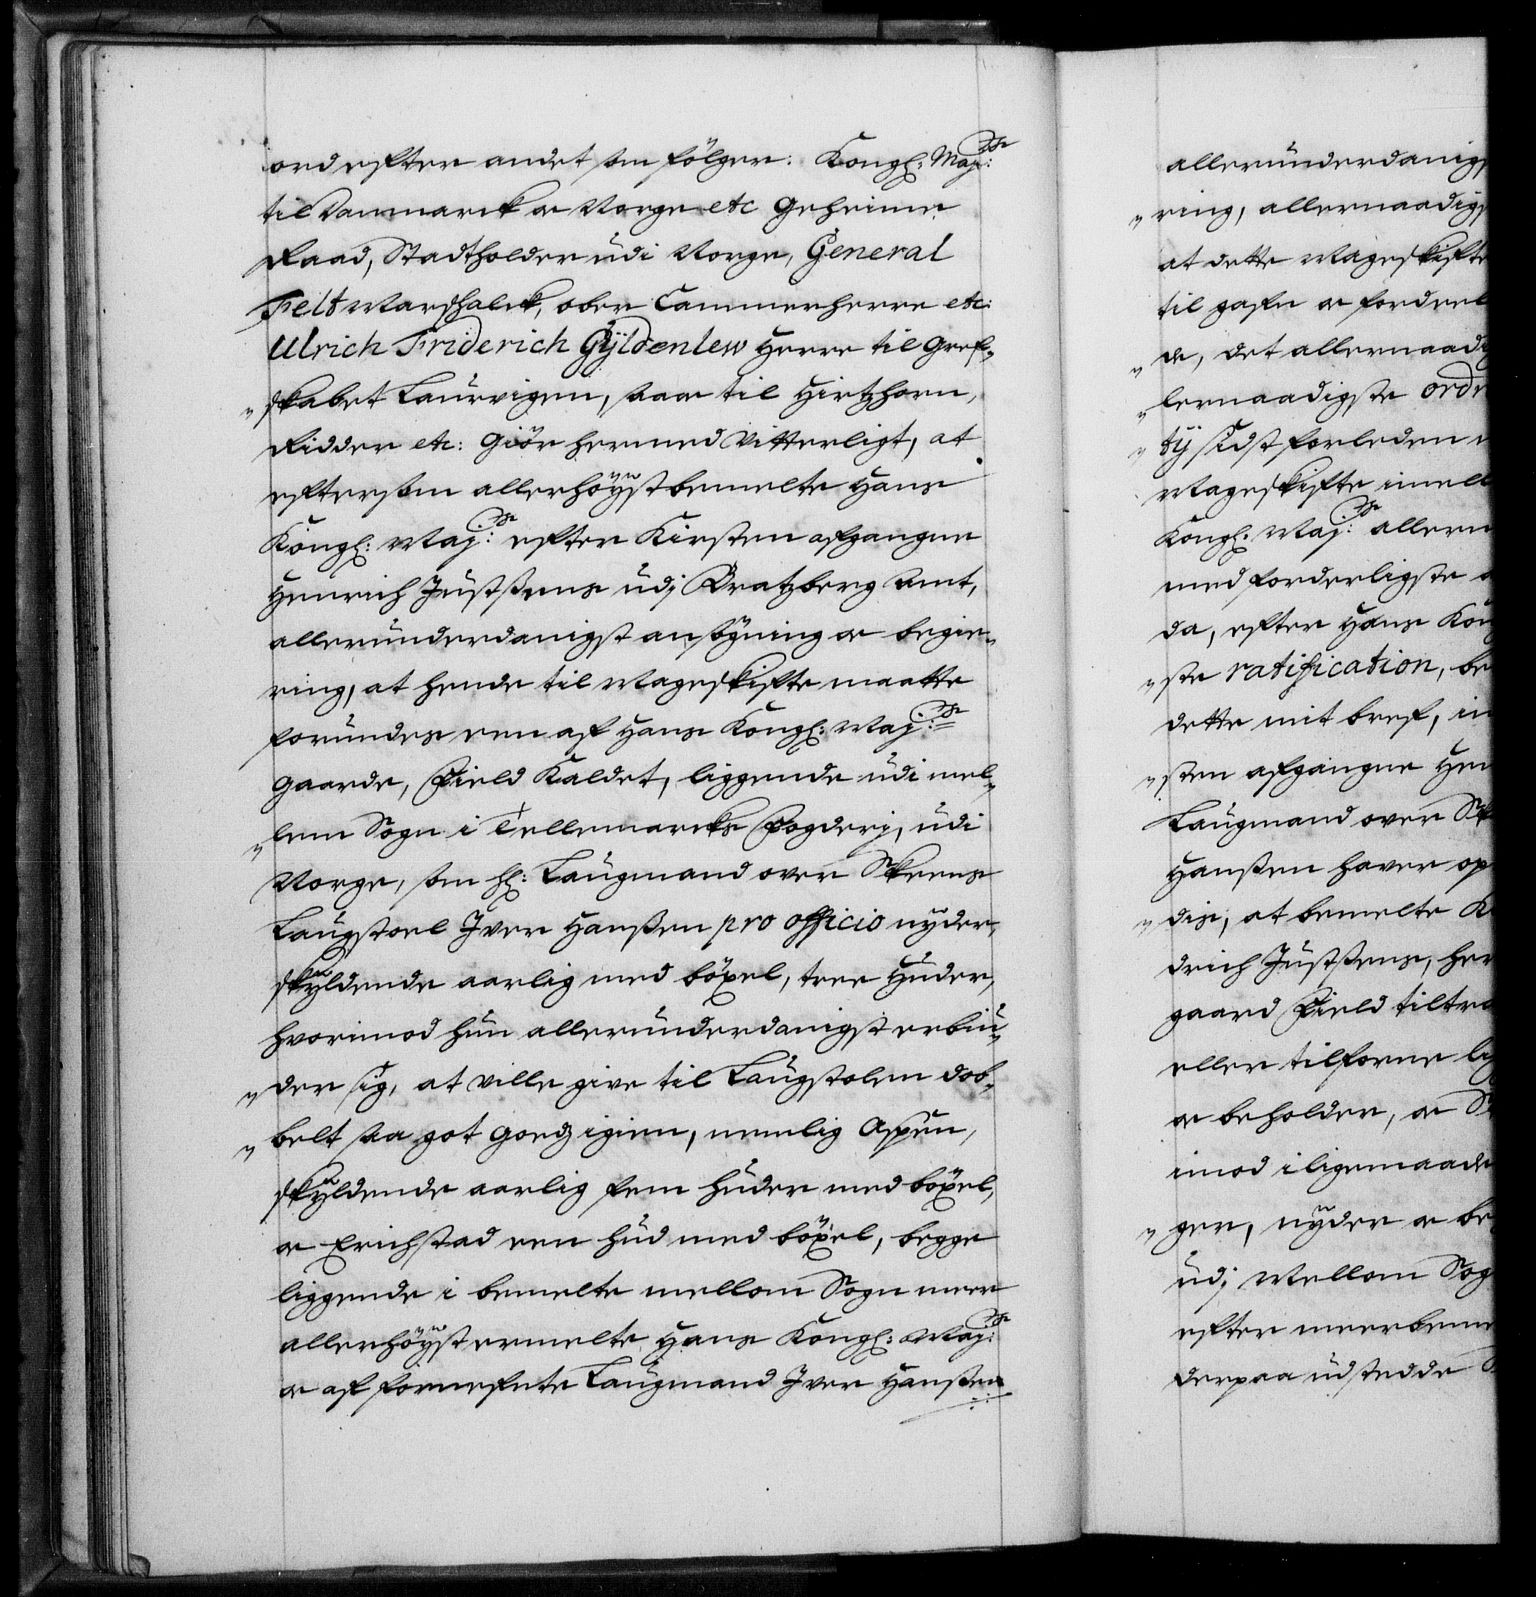 ord efter andet som fölger: Kongl: Maj:ts
til Danmarck oc Norge etc Geheime
Raad, Stadtholder üdi Norge, General
Felt Marshalck, ober Cammerherre etc:
Ulrich Friderich Gÿldenlew Herre til Gref-
"skabet Laürvigen, saa oc til Hirtzhorn,
Ridder etc: Giör hermed Vitterligt, at
eftersom allerhöÿstbemelte Hans
Kongl: Maj:ts efter Kirsten afgangne
Henrich Jüstsens üdj Bratzberg Amt,
alleründerdanigst ansögning oc begie-
ring, at hende til Mageskifte maatte
foründes een af Hans Kongl: Maj:ts
gaarde, Field Kaldet, liggende üdi mel-
"lem Sogn i Tellemarcks Fogderj, üdi
Norge, som hl: Laügmand over Skeens
Laügstoel Iver Hanßen pro officio nÿder,
skÿldende aarlig med böxel, tree Hüder,
hvorimod hün alleründerdanigst erbiü-
"der sig, at ville give til Laügstolen dob-
"belt saa got goedz igien, nemlig Aspün,
skÿldende aarlig fem hüder med böxel,
oc Erichstad een hüd med böxel, begge
liggende i bemelte mellom Sogn
allerhöÿstermelte Hans Kongl: Maj:ts
oc af fornefnte Laügmand Iver Hanßen
alleründerdanigs
"ring, allernaadigs
at dette Mageskifte
til gafn oc fordeel
"de, det allernaadig
"lernaadigste ordr
"tÿ sidst forleden
Mageskifte imell
Kongl: Maj:ts allern
med forderligste
da, efter Hans Kon
"ste ratification, be
dette mit bref, in
"sten afgangne Hen
Laügmand over Sk
Hanßen haver op
"dis, at bemelte K
drich Jüstsens, her
gaard Field tiltre
eller tilforne lig
oc beholder, oc S
imod i ligemaade
"ger, nÿder oc be
üdj Mellom Sog
efter meerbeme
derpaa üdstedde